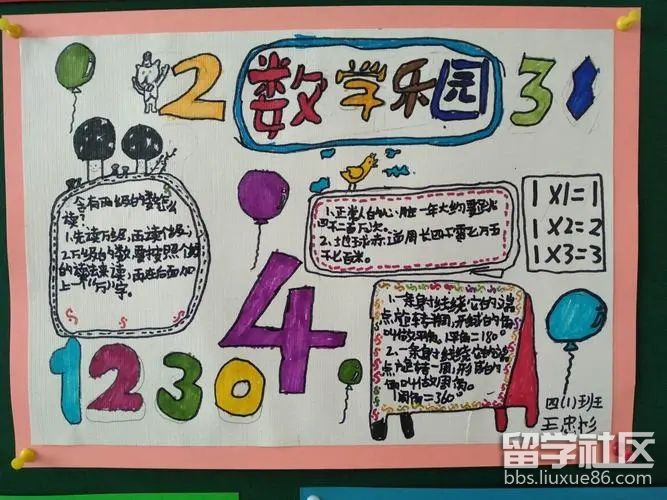 2 数学乐园 3
含有两级的数怎么
读?
1.先读万级,再读个级;
2.万级的数,要按照个级
的读法来读,再在后面加
上一个"万"字。
1.正常人的心脏一年大约要跳
四千二百万次。
2.地球赤道周长四千零七万五
千七百米。
1X1=1
1X2=2
1X3=3
4
1.一条射线绕它的端
点旋转半周,形成的角
叫做平角。1平角=180°
2.一条射线绕它的端
点旋转一周,形成的
角叫做周角。
周角=360°
1230
四(1)班
王忠杉
留学社区
bbs.liuxue86.com